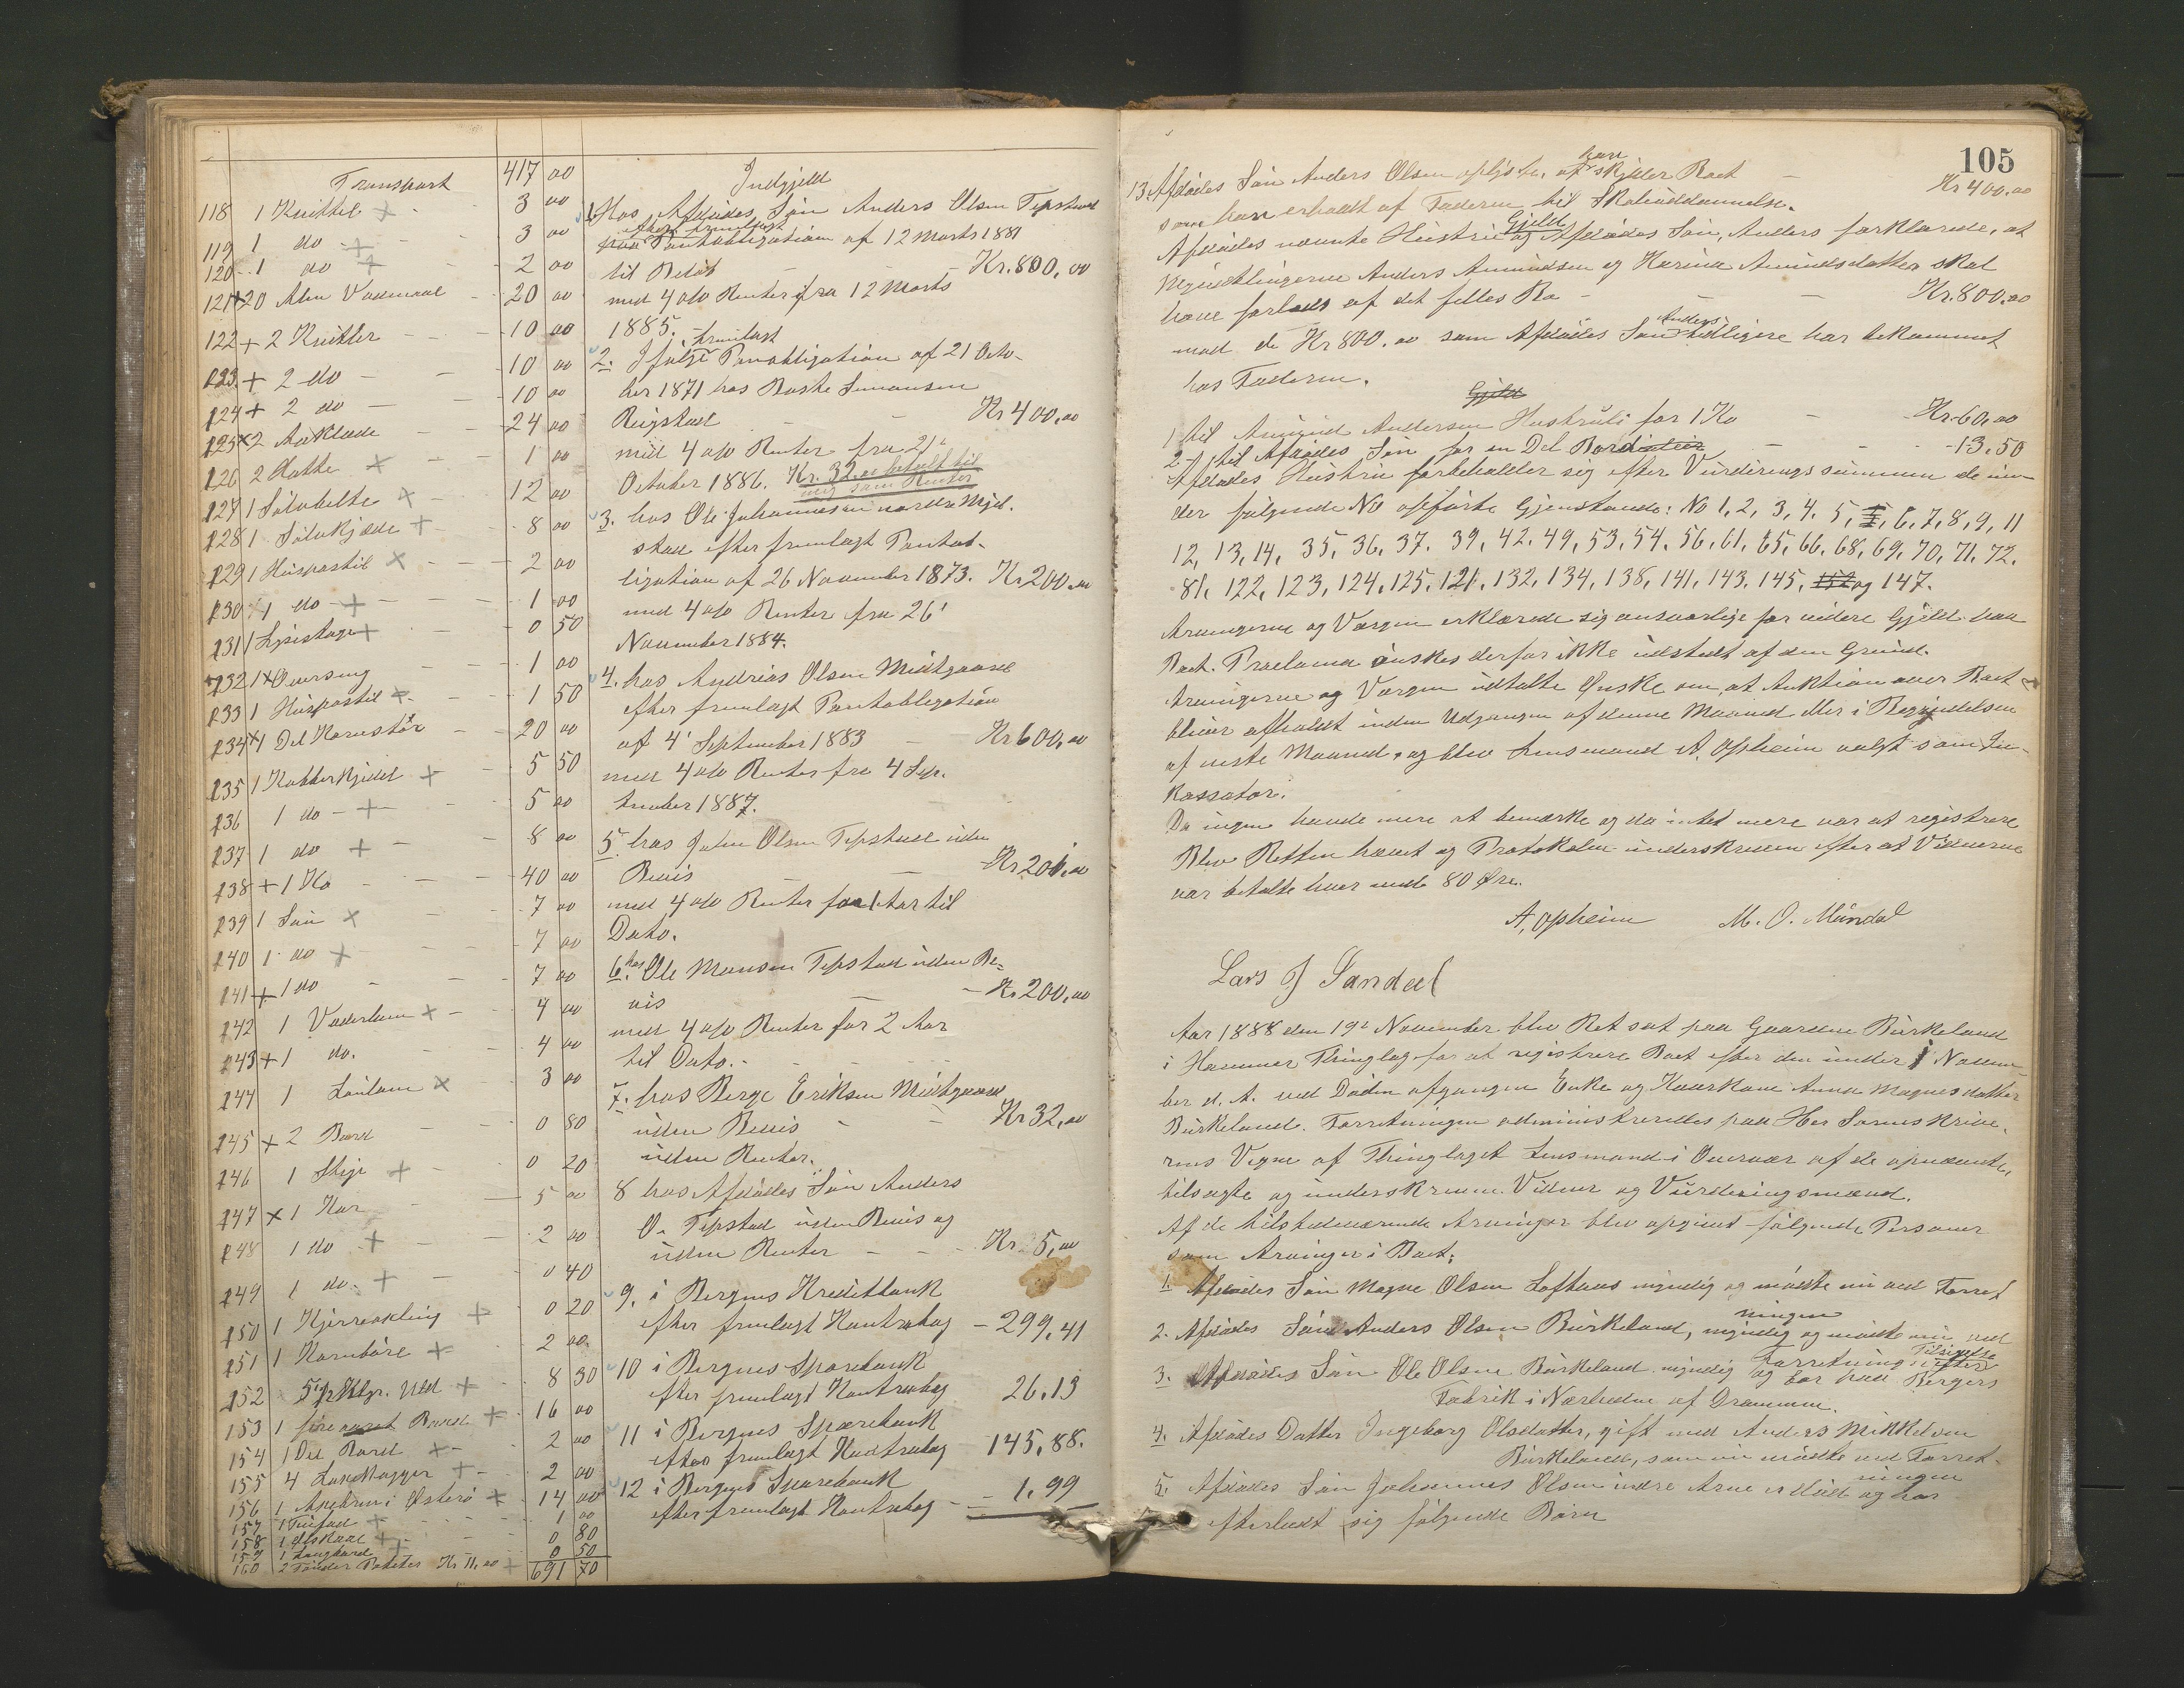 Transport 417 00
118 1 Knittel + 3 00
119 1 do + 3 00
120 1 do + 2 00
121 + 20 Alen Vadmaal 20 00
122 + 2 Knitler 10 00
123 + 2 do 10 00
124 + 2 do 10 00
125 x 2 Aaklæde 24 00
126 2 Hatte x 1 00
127 1 Sølvbelte x 12 00
128 1 Sølvkjæde + 8 00
129 1 Huspostil x 2 00
130 1 do + 1 00
131 1 Lysestage + 0 50
132 1 x Overseng 1 00
133 1 Huspostil x 1 50
134 x 1 Del Kornstør 20 00
135 1 Kobberkjedel + 5 50
136 1 do + 5 00
137 1 do + 8 00
138 + 1 Ko 40 00
139 1 Sau x 7 00
140 1 do + 7 00
141 + 1 do 7 00
142 1 Væderlam x 4 00
143 + 1 do. 4 00
144 1 Saulam x 3 00
145 + 2 Bord 0 80
146 1 Stige + 0 20
147 x 1 Kar 5 00
148 1 do + 2 00
149 1 do. + 0 40
150 1 Kjærrækling + 0 20
151 1 Kornbøre + 2 00
152 5 ½ Klgr. Uld + 8 30
153 1 Baad + 16 00
154 1 Del Bord + 2 00
155 4 Laxelagger + 2 00
156 1 i Osterø x 14 00
157 1 + 1 00
158 1 Ølskaal + 0 80
159 1 Langbord + 0 50
160 2 Tønder Poteter Kr 11,00 + 691 70
Indgjeld
1. Hos Afdødes Søn Anders Olsen Tepstad
efter fremlagt
Pantobligation af 12 Marts 1881
til Beløb Kr. 800,00
med 4 o/o Renter fra 12 Marts
1885.
fremlagt
2. Ifølge Panobligation af 21 Octo-
ber 1871 hos Baste Simonsen
Reigstad Kr 400,00
med 4 o/o Renter fra 21'
October 1886. Kr. 32,00 betalt til
mig som Renter
3. hos Ole Johannesen nordre Mjel-
stad efter fremlagt Pantob-
ligation af 26 November 1873. Kr 200,00
med 4 o/o Renter fra 26'
November 1884.
4. hos Andreas Olsen Midtgaard
efter fremlagt Pantobligation
af 4' September 1883 Kr 600,00
med 4 o/o Renter fra 4 Sep-
tember 1887.
5. hos John Olsen Tepstad uden
Bevis Kr 201,00
med 4 o/o Renter for 1 Aar til
Dato.
6. hos Ole Monsen Tepstad uden Be-
vis - Kr. 200,00
med 4 o/o Renter for 2 Aar
til Dato.
7. hos Berge Eriksen Midtgaard
uden Bevis Kr 32,00
uden Renter.
8 hos Afdødes Søn Anders
O. Tepstad uden Bevis og
uden Renter Kr. 5,00
9. i Bergens Kreditbank
efter fremlagt Kontrabog - 299,41
10 i Bergens Sparebank
efter fremlagt Kontrabog 26.13
11 i Bergens Sparebank
efter fremlagt Kontrabog 145,88.
12 i Bergens Sparebank
efter fremlagt Kontrabog - 1,99
105
13. Afdødes Søn Anders Olsen oplyste, at han skylder Boet Kr 400,00
som han erholdt af Faderen til Skoleuddannelse.
Afdødes nævnte Hustru og Afdødes Søn, Anders forklarede, at
Gjeld
Myndtlingerne Anders Amundsen og Karina Amundsdatter skal
have forlods af det felles Bo Kr. 800,00
mod de Kr 800.00 som Afdødes Søn Anders tidligere har bekommet
hos Faderen.
Gjeld
1 til Amund Andersen Hustruli for 1 Ko Kr. 60,00
2 - til Afdødes Søn for en Del Bord - 13.50
Afdødes Hustru forbeholder sig efter Vurderingssummen de un-
der følgende No opførte Gjenstande: No 1, 2, 3, 4. 5, 5, 6, 7, 8, 9, 11
12, 13, 14, 35, 36, 37. 39, 42. 49, 53, 54, 56, 61, 65, 66, 68, 69, 70, 71, 72.
81, 122, 123, 124, 125, 121, 132, 134, 138, 141, 143, 145, 152 og 147.
Arvingerne og Værgen erklærede sig ansvarlige for videre Gjeld hos
Boet. Proclama ønskes derfor ikke udstedt af den Grund.
Arvingerne og Værgen udtalte Ønske om, at Auktion over Boet
bliver afholdt inden Udgangen af denne Maaned eller i Begyndelsen
af neste Maaned, og blev Lensmand A. Opheim valgt som In-
kassator.
Da ingen havde mere at bemærke og da intet mere var at registrere
Blev Retten hævet og Protokolen underskreven efter at Vidnerne
var betalte hver med 80 Øre.
A, Opheim M. O. Mundal
Lars J Sandal
Aar 1888 den 19' November blev Ret sat paa Gaarden Birkeland
i Hammer Thinglag for at registrere Boet efter den under 1 Novem-
ber d. A. ved Døden afgangen Enke og Kaarkone Anna Magnesdatter
Birkeland. Forretningen administreredes paa Hr Sorenskrive-
rens Vegne af Thinglaget Lensmand i Overvær af de opnævnte,
tilsagte og underskrevne Vidner og Vurderingsmænd.
Af de tilstedeværende Arvinger blev opgivet følgende Personer
som Arvinger i Boet:
1. Afdødes Søn Magne Olsen Lofthus myndig og mødte nu ved Forret
ningen
2. Afdødes Søn Anders Olsen Birkeland, myndig og mødte nu ved
Forretningen efter Tilsigelse
3. Afdødes Søn Ole Olsen Birkeland myndig og bor ved Bergers
Fabrik i Nærheden af Drammen.
4. Afdødes Datter Ingeborg Olsdatter, gift med Anders Mikkelsen
Birkeland, som nu mødte ved Forret-
ningen
5. Afdødes Søn Johannes Olsen indre Arne er død og har
efterladt sig følgende Børn